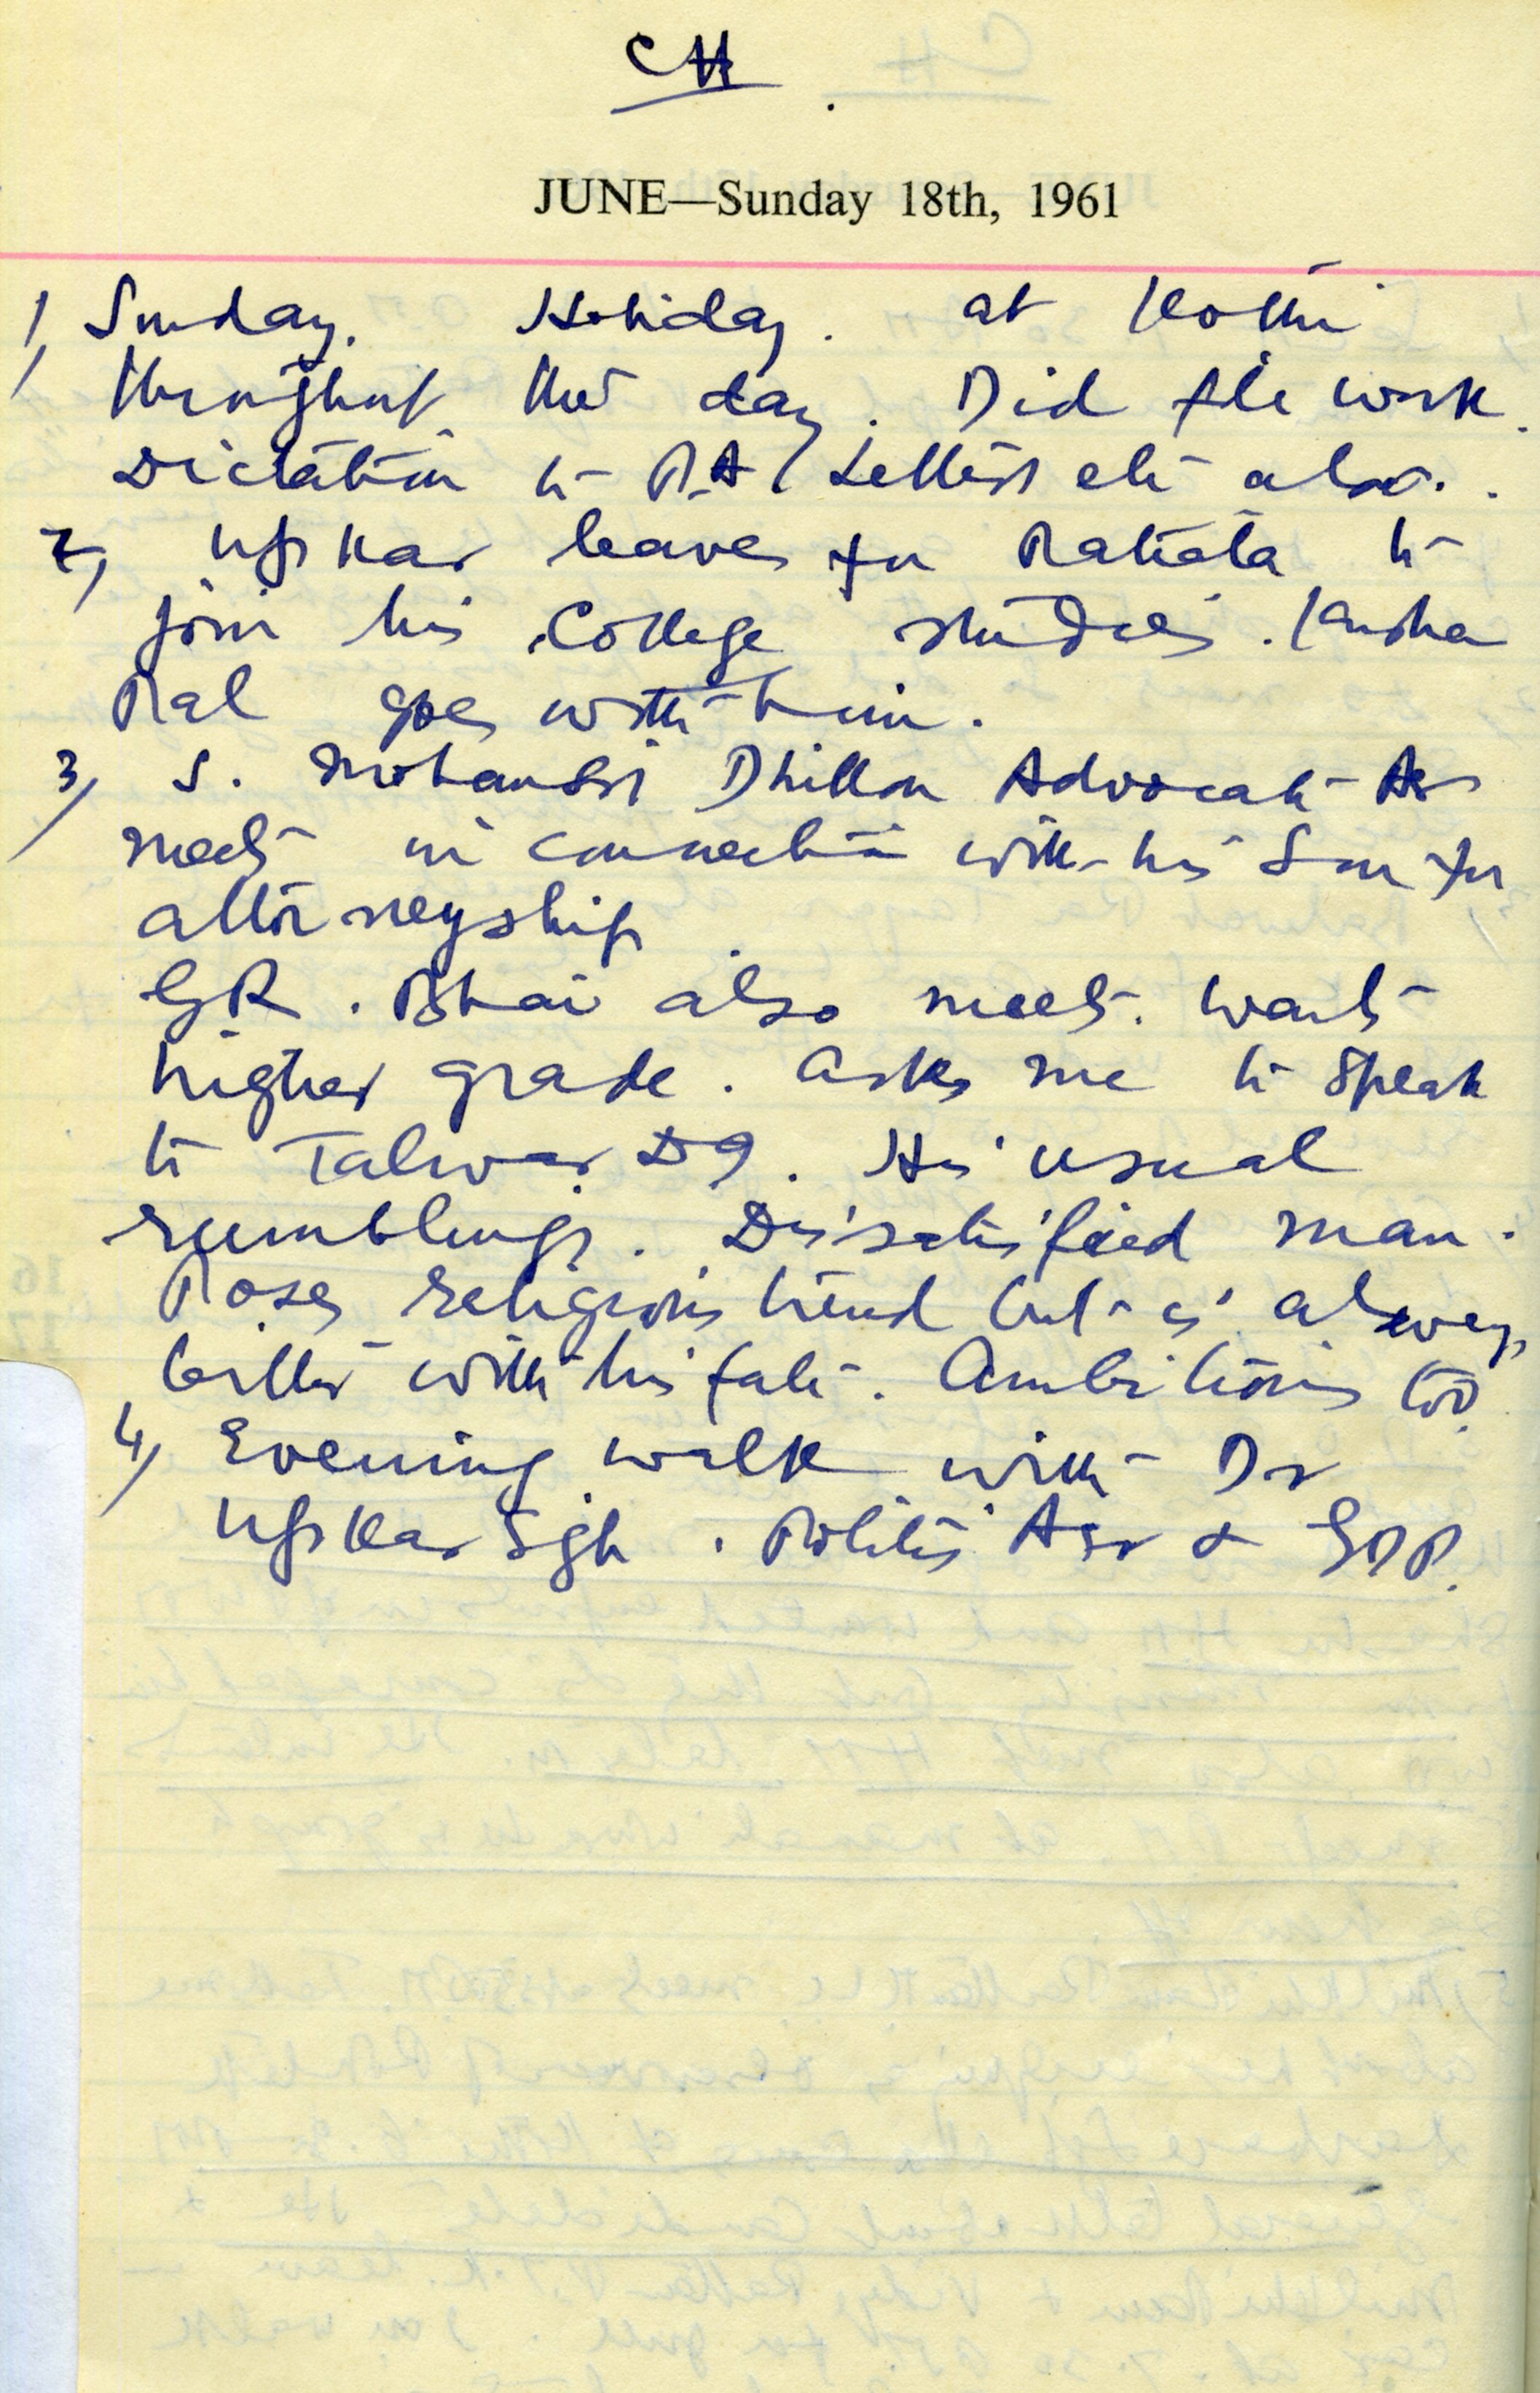 CH
JUNE—Sunday 18th, 1961
1, Sunday. Holiday. at Kothi
throughout the day. Did file work.
Dictation to P.A. Letters etc also.
2, Upkar leaves for Patiala to
join his College studies. Krisha
Pal goes with him.
3, S. Mohansi Dhillon Advocate Asr
meets in connection with his Son for
attorneyship
GR. Bhai also meets. wants
higher grade. Asks me to speak
to Talwar DG. His usual
rumblings. Dissatisfied man.
Poses religious trend but is always
bitter with his fate. Ambitious too.
4, Evening walk with Dr
Upkar Sgh. Politics Asr &